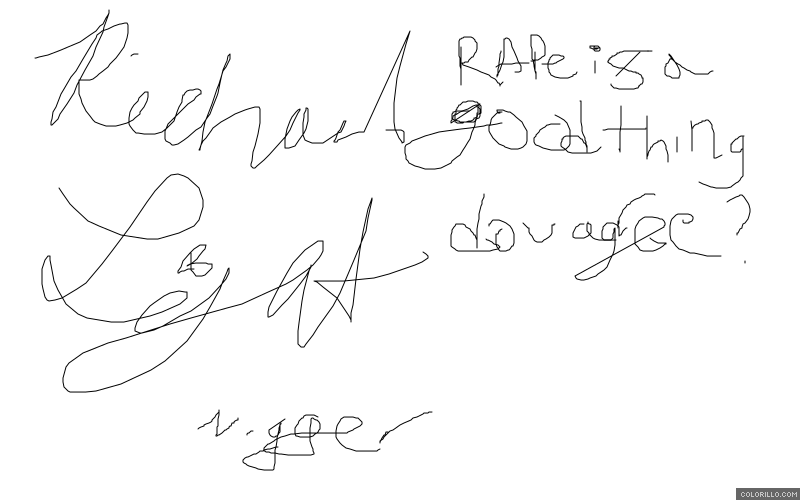 Richard
RAPe is a
good thing
do u agree?
nigger
COLORILLO.COM